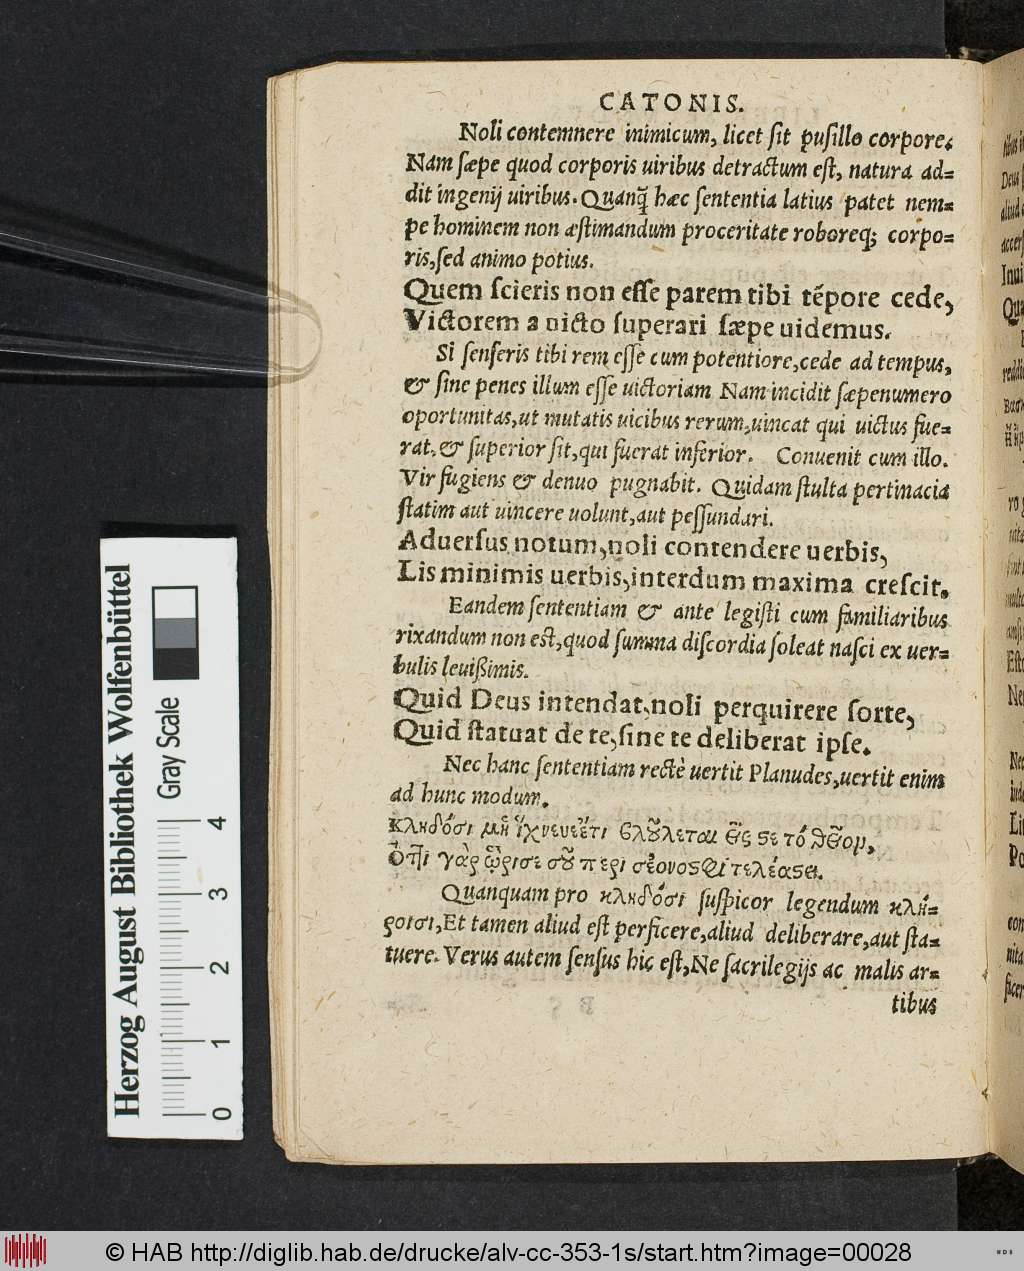 CATONIS.
Noli contemnere inimicum, licet ſit puſillo corpore.
Nam ſæpe quod corporis uiribus detractum eſt, natura ad=
dit ingenij uiribus. Quanq̃ hæc ſententia latius patet nem=
pe hominem non æſtimandum proceritate roboreq; corpo=
ris, ſed animo potius.
Quem ſcieris non eſſe parem tibi tẽpore cede,
Victorem a uicto ſuperari ſæpe uidemus.
Si ſenſeris tibi rem eſſe cum potentiore, cede ad tempus,
& ſine penes illum eſſe uictoriam Nam incidit ſæpenumero
oportunitas, ut mutatis uicibus rerum, uincat qui uictus fue=
rat, & ſuperior ſit, qui fuerat inferior. Conuenit cum illo.
Vir fugiens & denuo pugnabit. Quidam ſtulta pertinacia
ſtatim aut uincere uolunt, aut peſſundari.
Aduerſus notum, noli contendere uerbis,
Lis minimis uerbis, interdum maxima creſcit.
Eandem ſententiam & ante legiſti cum familiaribus
rixandum non eſt, quod ſumma diſcordia ſoleat naſci ex uer=
bulis leuißimis.
Quid Deus intendat, noli perquirere ſorte,
Quid ſtatuat de te, ſine te deliberat ipſe.
Nec hanc ſententiam rectè uertit Planudes, uertit enim
ad hunc modum.
κληδόσι μὴ
γὰρ περι
Quanquam pro κληδόσι ſuſpicor legendum κλή=
ροισι, Et tamen aliud eſt perficere, aliud deliberare, aut ſta=
tuere. Verus autem ſenſus hic eſt, Ne ſacrilegijs ac malis ar=
tibus
Herzog August Bibliothek Wolfenbüttel
Gray Scale
0 1 2 3 4
© HAB http://diglib.hab.de/drucke/alv-cc-353-1s/start.htm?image=00028